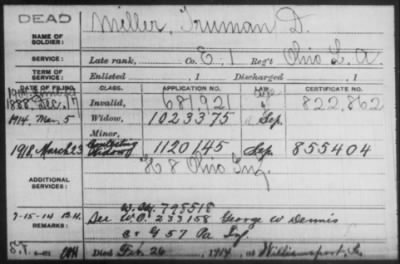 DEAD
NAME OF SOLDIER:
Miller, Truman D.
SERVICE:
Late rank, Co. E, 1 Reg't Ohio L. A.
TERM OF SERVICE:
Enlisted , 1 Discharged , 1
DATE OF FILING. CLASS. APPLICATION NO. LAW. CERTIFICATE NO.
1888 Dec. 17 Invalid, 681921 822,862
1914 Mar. 5 Widow, 1023375 Sep.
Minor,
1918 March 23 Contesting Widow 1120145 Sep. 855404
ADDITIONAL SERVICES:
K 8 Ohio Inf.
REMARKS:
795518
See W.O. 233158 George W Dennis
G 57 Pa Inf
Died Feb. 26, 1914, at Williamsport,